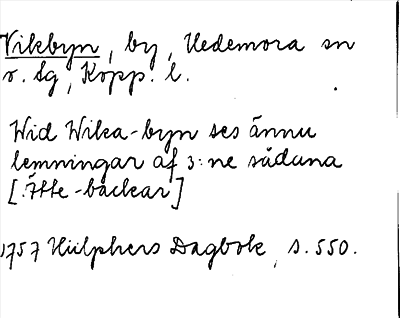 Vikbyn, by, Hedemora sn
o. lg, Kopp. l.
Wid Wika-byn ses ännu
lemningar af 3:ne sådana
[:Ätte-backar]
1757 Hülphers Dagbok, s. 550.